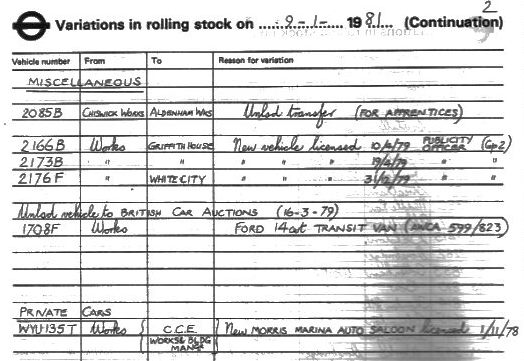 2
Variations in rolling stock on 9-1- 1981 (Continuation)
Vehicle number From To Reason for variation
MISCELLANEOUS
2085B CHISWICK WORKS ALDENHAM WKS Unlsd transfer (FOR APPRENTICES)
2166B Works GRIFFITH HOUSE New vehicle licensed 10/4/79 PUBLICITY OFFICER (Gp2)
2173B " " " " " 19/4/79 " "
2176F " WHITE CITY " " " 31/12/79 " "
Unlsd vehicle to BRITISH CAR AUCTIONS (16-3-79)
1708F Works FORD 14cwt TRANSIT VAN ( 599/823)
PRIVATE CARS
WYU 135T Works C.C.E. New MORRIS MARINA AUTO SALOON licensed 1/11/78
WORKS & BLDG
MANGR